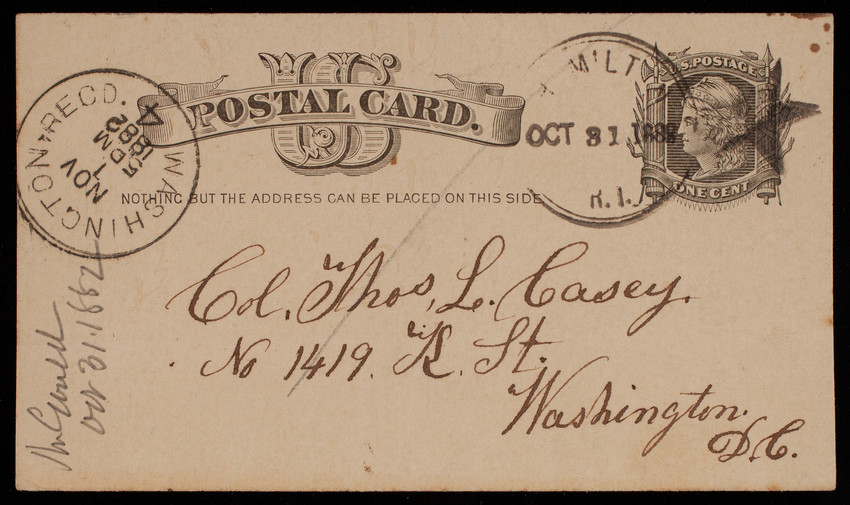 US
POSTAL CARD.
U.S. POSTAGE
ONE CENT
NOTHING BUT THE ADDRESS CAN BE PLACED ON THIS SIDE
WASHINGTON, RECD.
NOV
1
5 PM
1882
4
OCT 31 188
R.I.
Col. Thos. L. Casey.
No 1419. K. St.
Washington.
D.C.
Oct 31. 1882